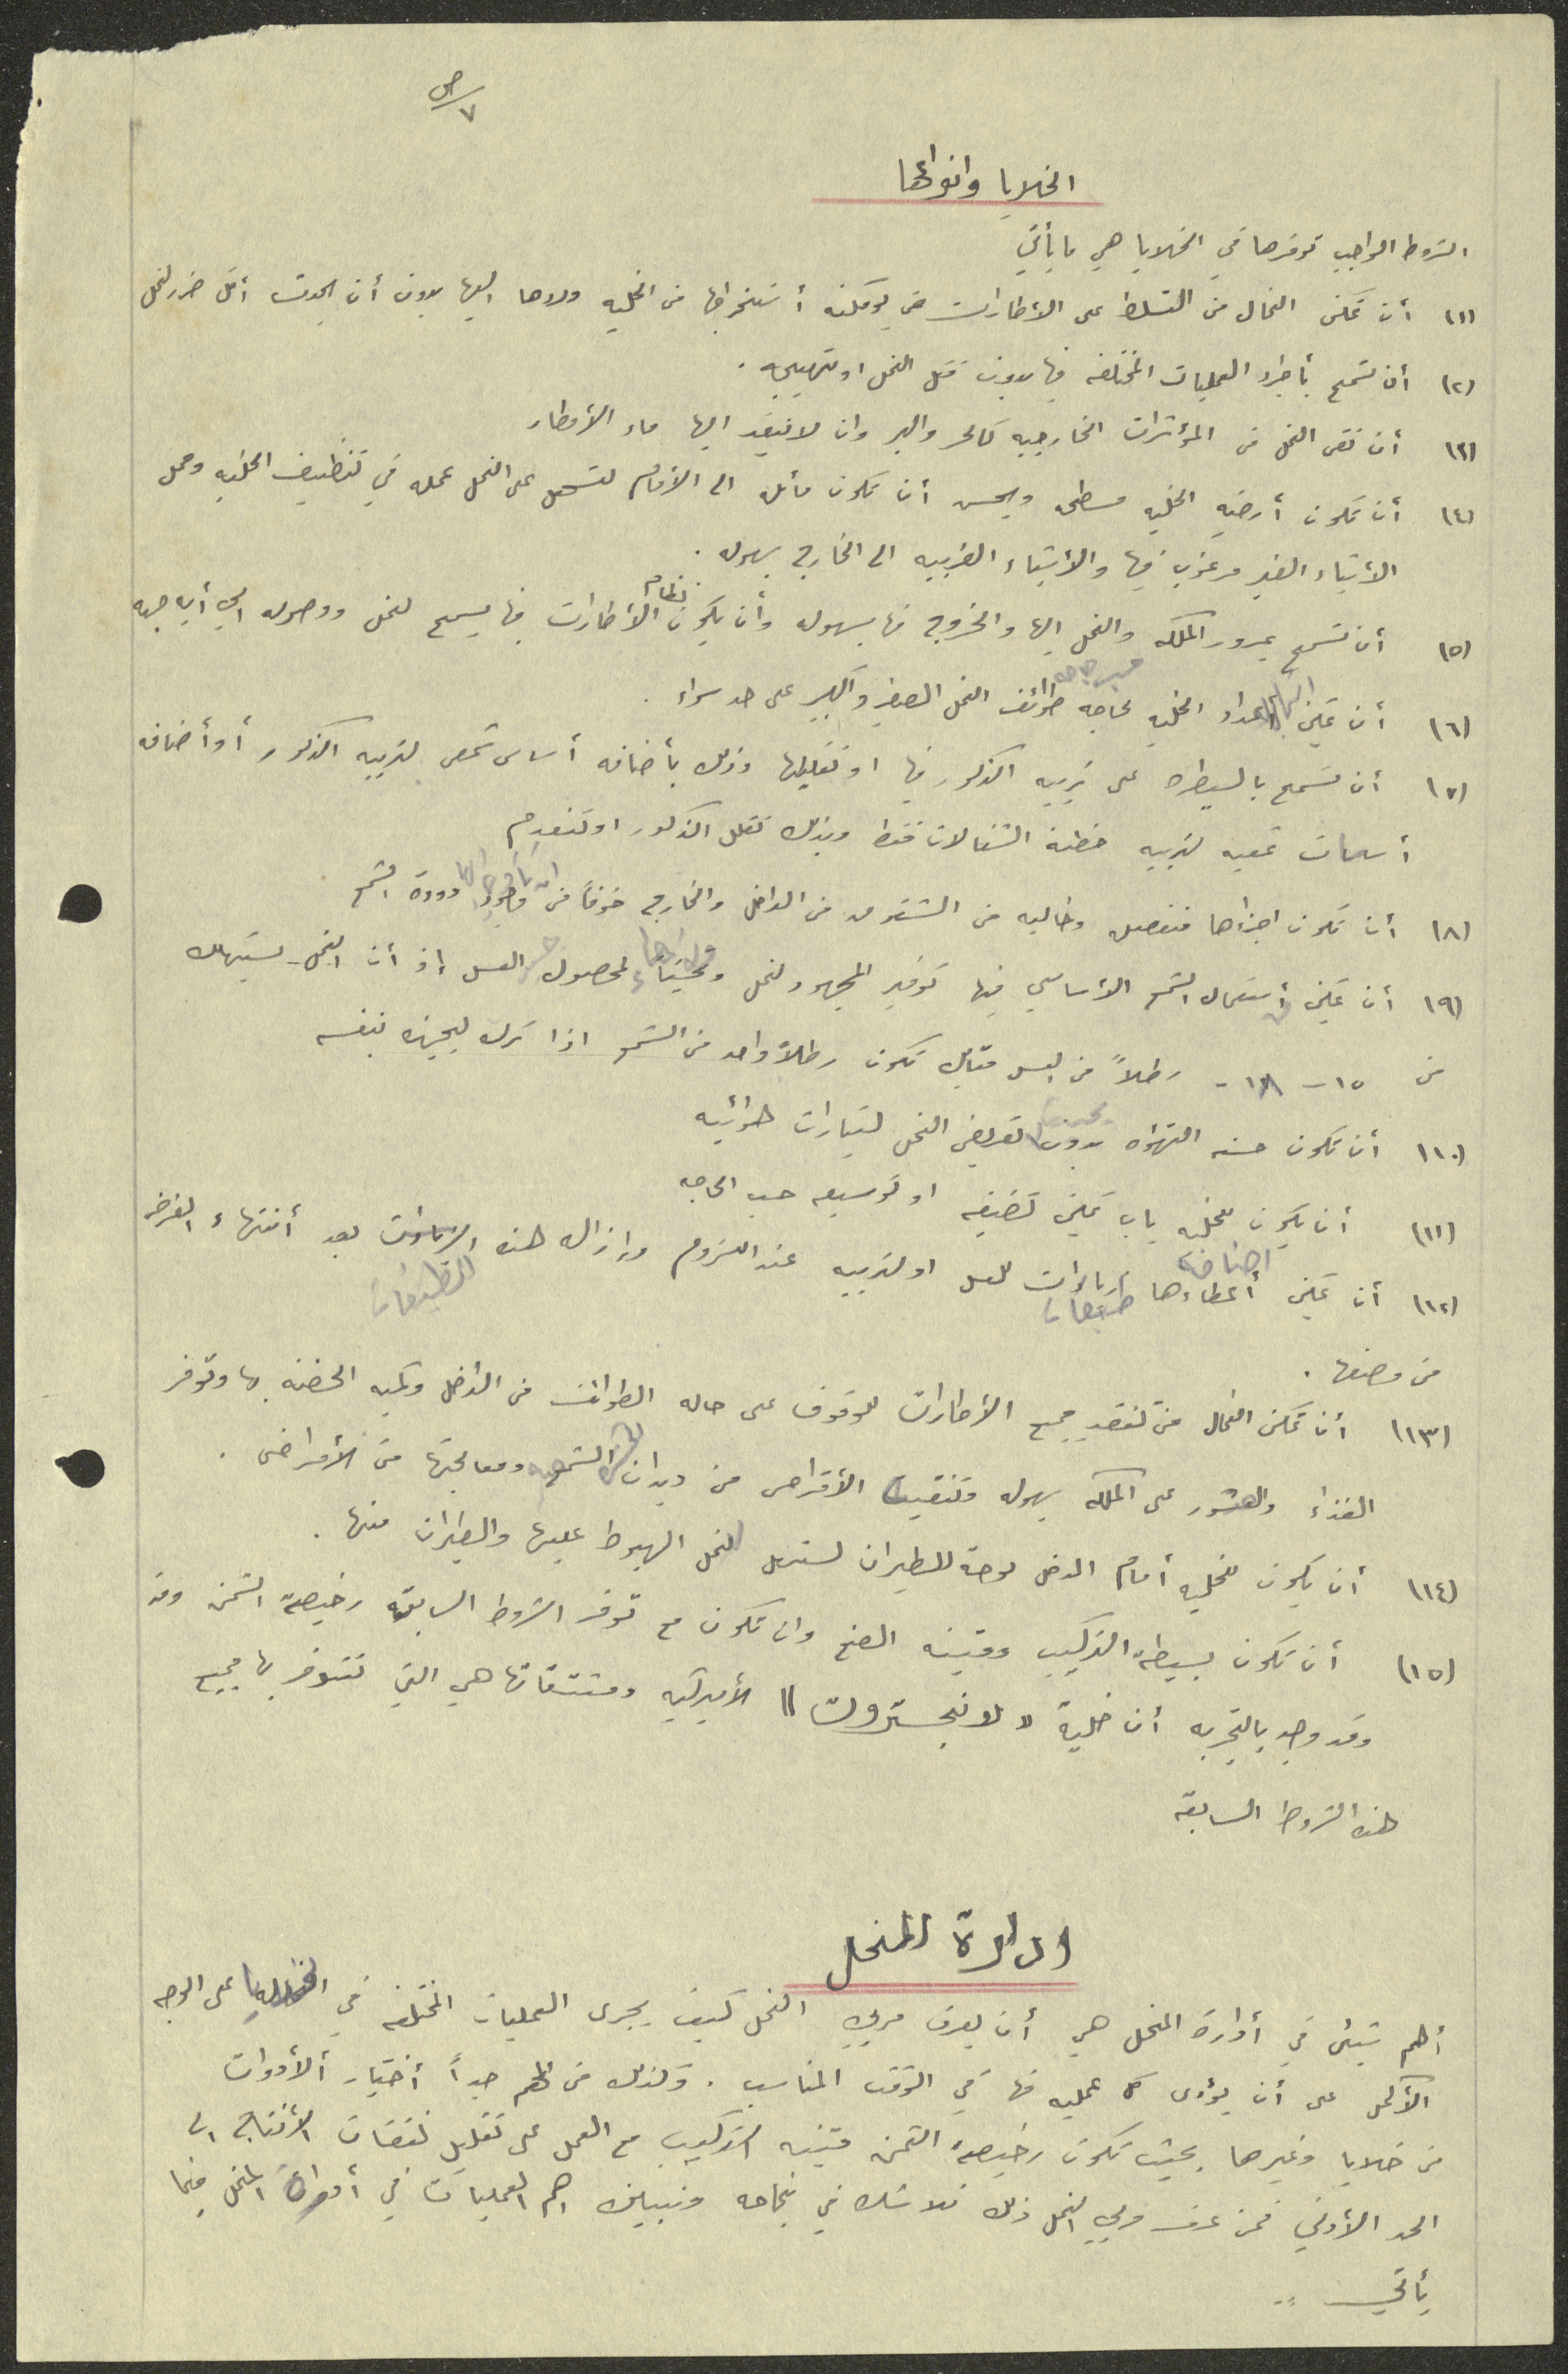 ص/٧
الخلايا وانواعها
الشروط الواجب توفرها في الخلايا هي ما يأتي
(١) أن تمكن النحال من التسلط على الأطارات حتى يمكنه أستخراجها من الخليه وردها اليها بدون أن يحدث أقل ضرر للنحل
(٢) أن تسمح بأجراء العمليات المختلفه فيها بدون قتل النحل او تهييجه .
(٣) أن تقى النحل من المؤثرات الخارجيه كالحر والبرد وان لا تنفذ اليها ماء الأمطار
(٤) أن تكون أرضيه الخليه مسطحه ويحسن أن تكون مائله الى الأمام لتسهل على النحل عمله في تنظيف الخليه وحمل
الأشياء الغير مرغوب فيها والأشياء الغريبه الى الخارج بسهوله .
(٥) أن تسمح بمرور الملكه والنحل اليها والخروج منها بسهوله وأن يكون نظام الأطارات فيها يسمح للنحل ووصوله الى أي جهه
(٦) أن يمكن اعداد الخليه لحاجه طوائف النحل الصغير والكبير على حد سواء .
(٧) أن تسمح بالسيطره على تربيه الذكور فيها او تقليلها وذلك بأضافه أساس شمعى لتربيه الذكور أو أضافه
أساسات شمعيه لتربيه حضنة الشغالات فقط وبذلك تقلل الذكور او تنعدم
(٨) أن تكون اجزاءها منفصله وخاليه من الشقوق من الداخل والخارج خوفاً من وجود دودة الشمع
(٩) أن يمكن أستعمال الشمع الأساسي فيها توفير المجهود للنحل وتحسينا لمحصول العسل إذ أن النحل يستهلك
من ١٥ - ١٨ - رطلاً من العسل مقابل تكون رطلاً واحد من الشمع اذا ترك ليجهزه بنفسه
(١٠) أن تكون حسنه التهوئه بدون تعريض النحل لتيارات هوائيه
(١١) أن يكون للخليه باب يمكن تضيقه او توسيعه حسب الحاجه
(١٢) أن يمكن أعطاءها اضافة طبقات للعسل او لتربيه عند اللزوم وإزاله هذه الطبقات بعد أنتهاء الغرض
من وضعها .
(١٣) أن تمكن النحال من تفقد جميع الأطارات للوقوف على حاله الطوائف من الداخل وكميه الحضنه بها وتوفر
الغذاء والعثور على الملكه بسهوله وتنقية الأقراص من ديدان الشمع ومعالجتها من الأمراض .
(١٤) أن يكون للخليه أمام المدخل لوحة للطيران لتسهل للنحل الهبوط عليها والطيران منها .
(١٥) أن تكون بسيطة التركيب ومتينه الصنع وان تكون مع توفر الشروط السابقه رخيصة الثمن وقد
وقد وجد بالتجربه أن خلية « لانجستروث » الأميركيه ومشتقاتها هي التي تتوفر بها جميع
هذه الشروط السابقه
ادارة المنحل
أهم شئ في أدارة المنحل هي أن يعرف مربي النحل كيف يجرى العمليات المختلفه في الخلايا على الوجه
الأكمل على أن يؤدى كل عمليه منها في الوقت المناسب . وكذلك من المهم جداً أختيار ألأدوات
من خلايا وغيرها بحيث تكون رخيصة الثمن متينه التركيب مع العمل على تقليل نفقات الأنتاج الى
الحد الأدنى فمن عرف مربي النحل ذلك فلا شك في نجاحه ونبين اهم العمليات في أدارة المنحل فيما
يأتي :-